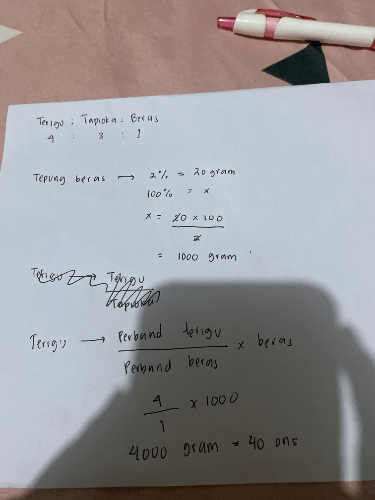 Terigu : Tapioka : Beras
4 : 3 : 1
Tepung beras → 2% = 20 gram
100% = x
x = 20 x 100
2
= 1000 gram
Terigu → Terigu
Terigu → Perband terigu x beras
Perband beras
4 x 1000
1
4000 gram = 40 ons